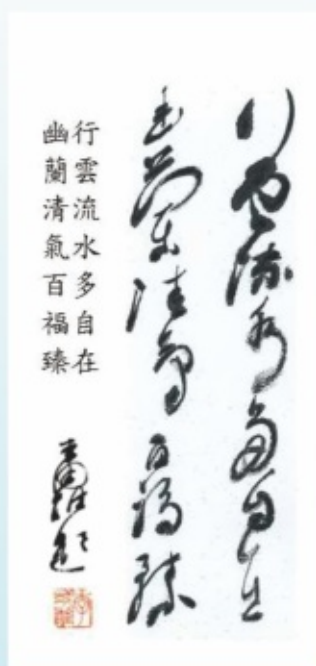 行雲流水多自在
幽蘭清氣百福臻
行雲流水多自在
幽蘭清氣百福臻